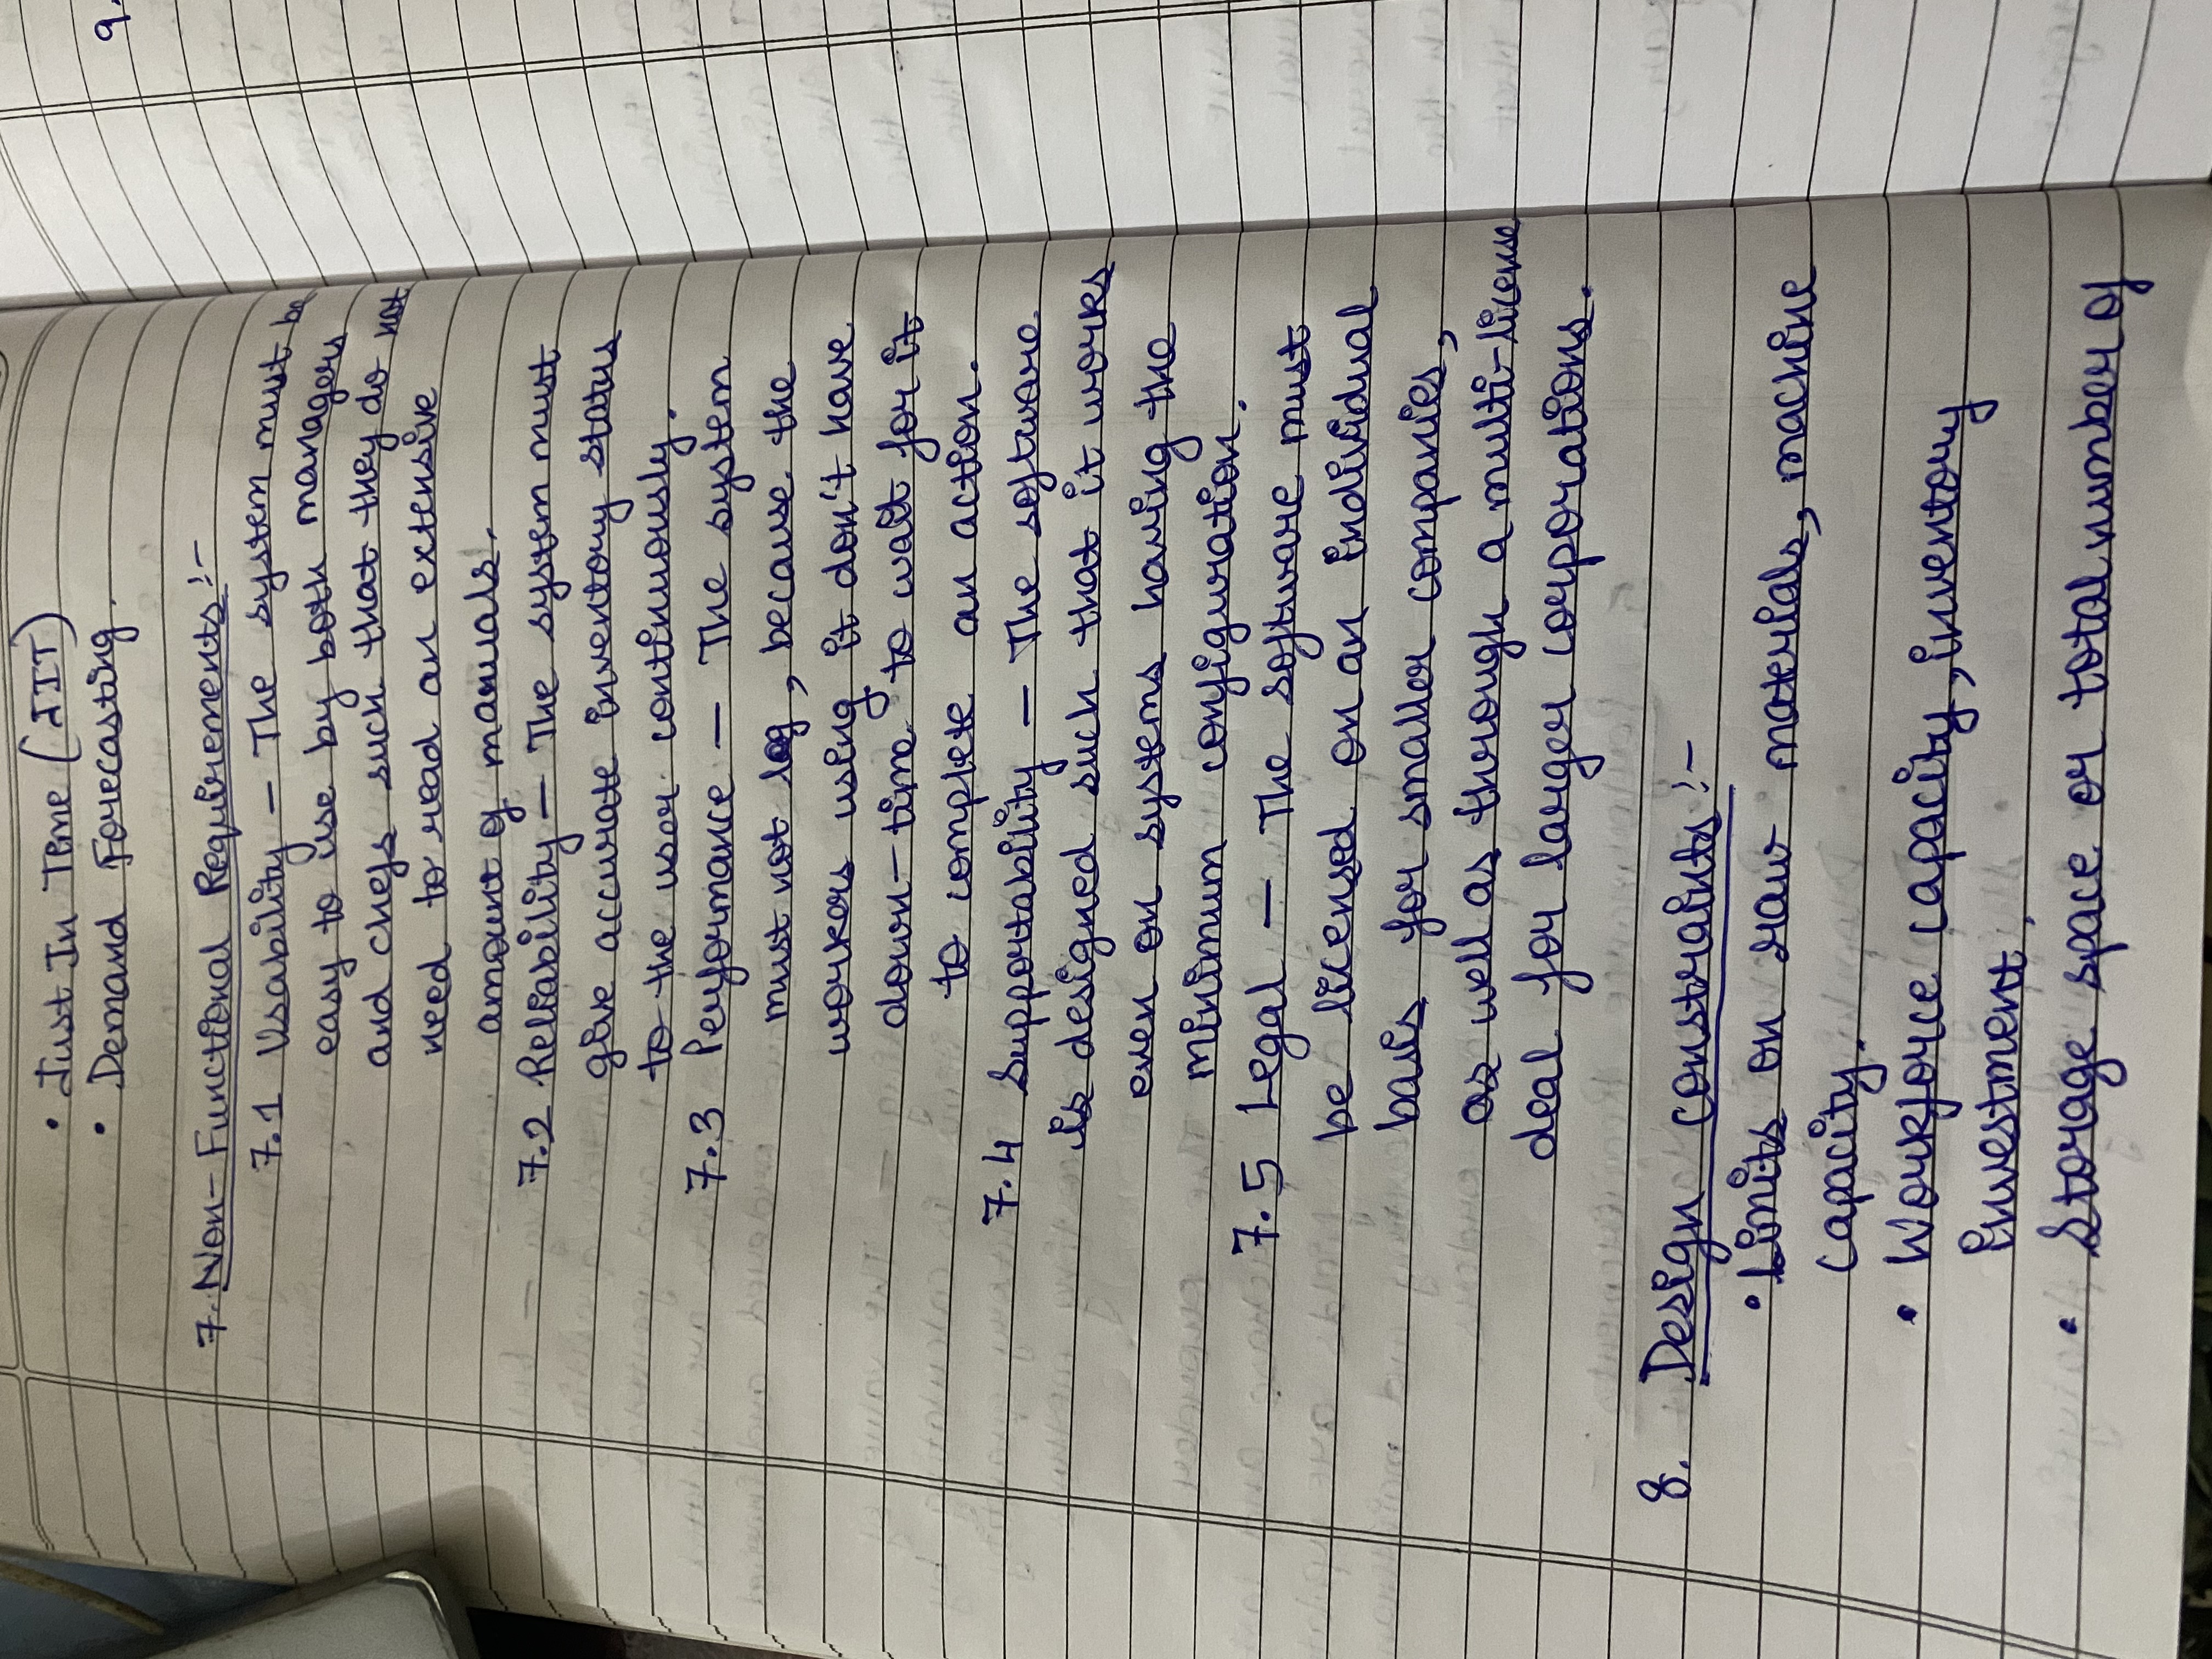 • Just In Time (JIT)
• Demand Forecasting.
7. Non-Functional Requirements :-
7.1 Usability — The system must be
easy to use by both managers
and chefs such that they do not
need to read an extensive
amount of manuals.
7.2 Reliability — The system must
give accurate inventory status
to the user continuously.
7.3 Performance — The system
must not lag, because the
workers using it don't have
down-time to wait for it
to complete an action.
7.4 Supportability — The software
is designed such that it works
even on systems having the
minimum configuration.
7.5 Legal — The software must
be licensed on an individual
basis for smaller companies,
as well as through a multi-license
deal for larger corporations.
8. Design constraints :-
• Limits on raw materials, machine
capacity.
• Workforce capacity, inventory
investment.
• Storage space or total number of
9.